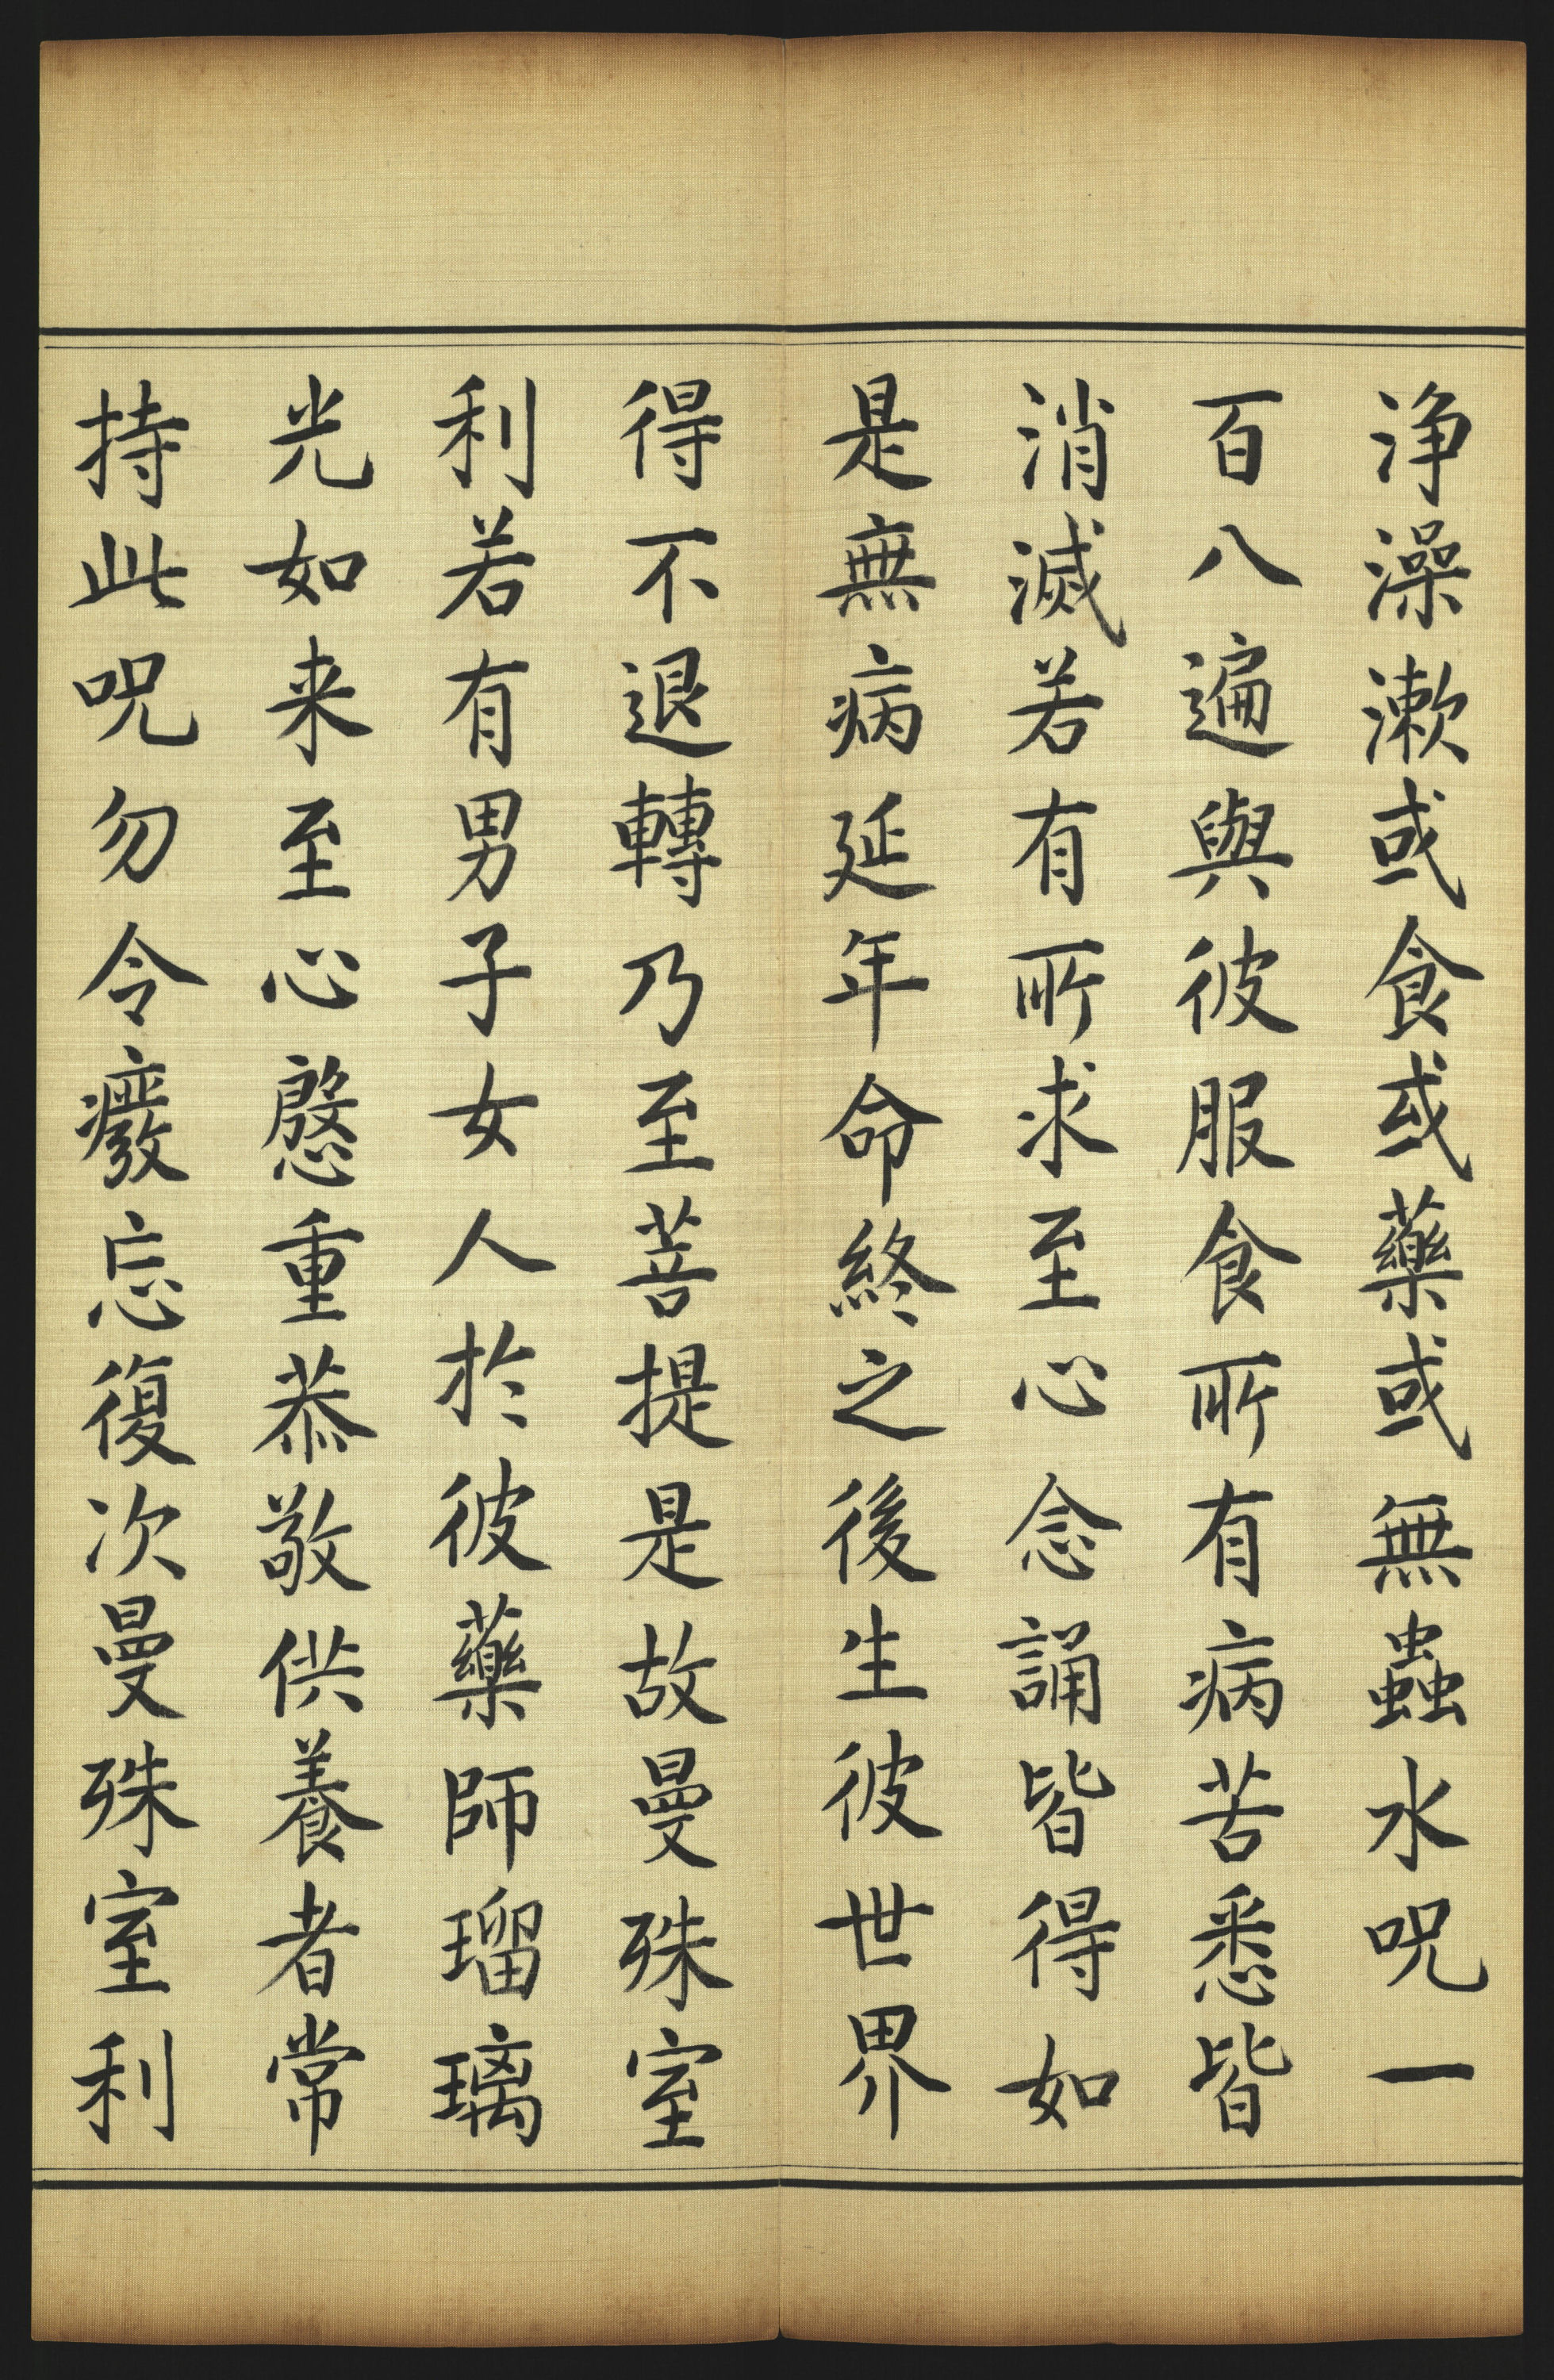 净澡漱或食或藥或無蟲水呪一
百八遍與彼服食所有病苦悉皆
消滅若有所求至心念誦皆得如
是無病延年命終之後生彼世界
得不退轉乃至菩提是故曼殊室
利若有男子女人於彼藥師瑠璃
光如来至心慇重恭敬供養者常
持此呪勿令癈忘復次曼殊室利